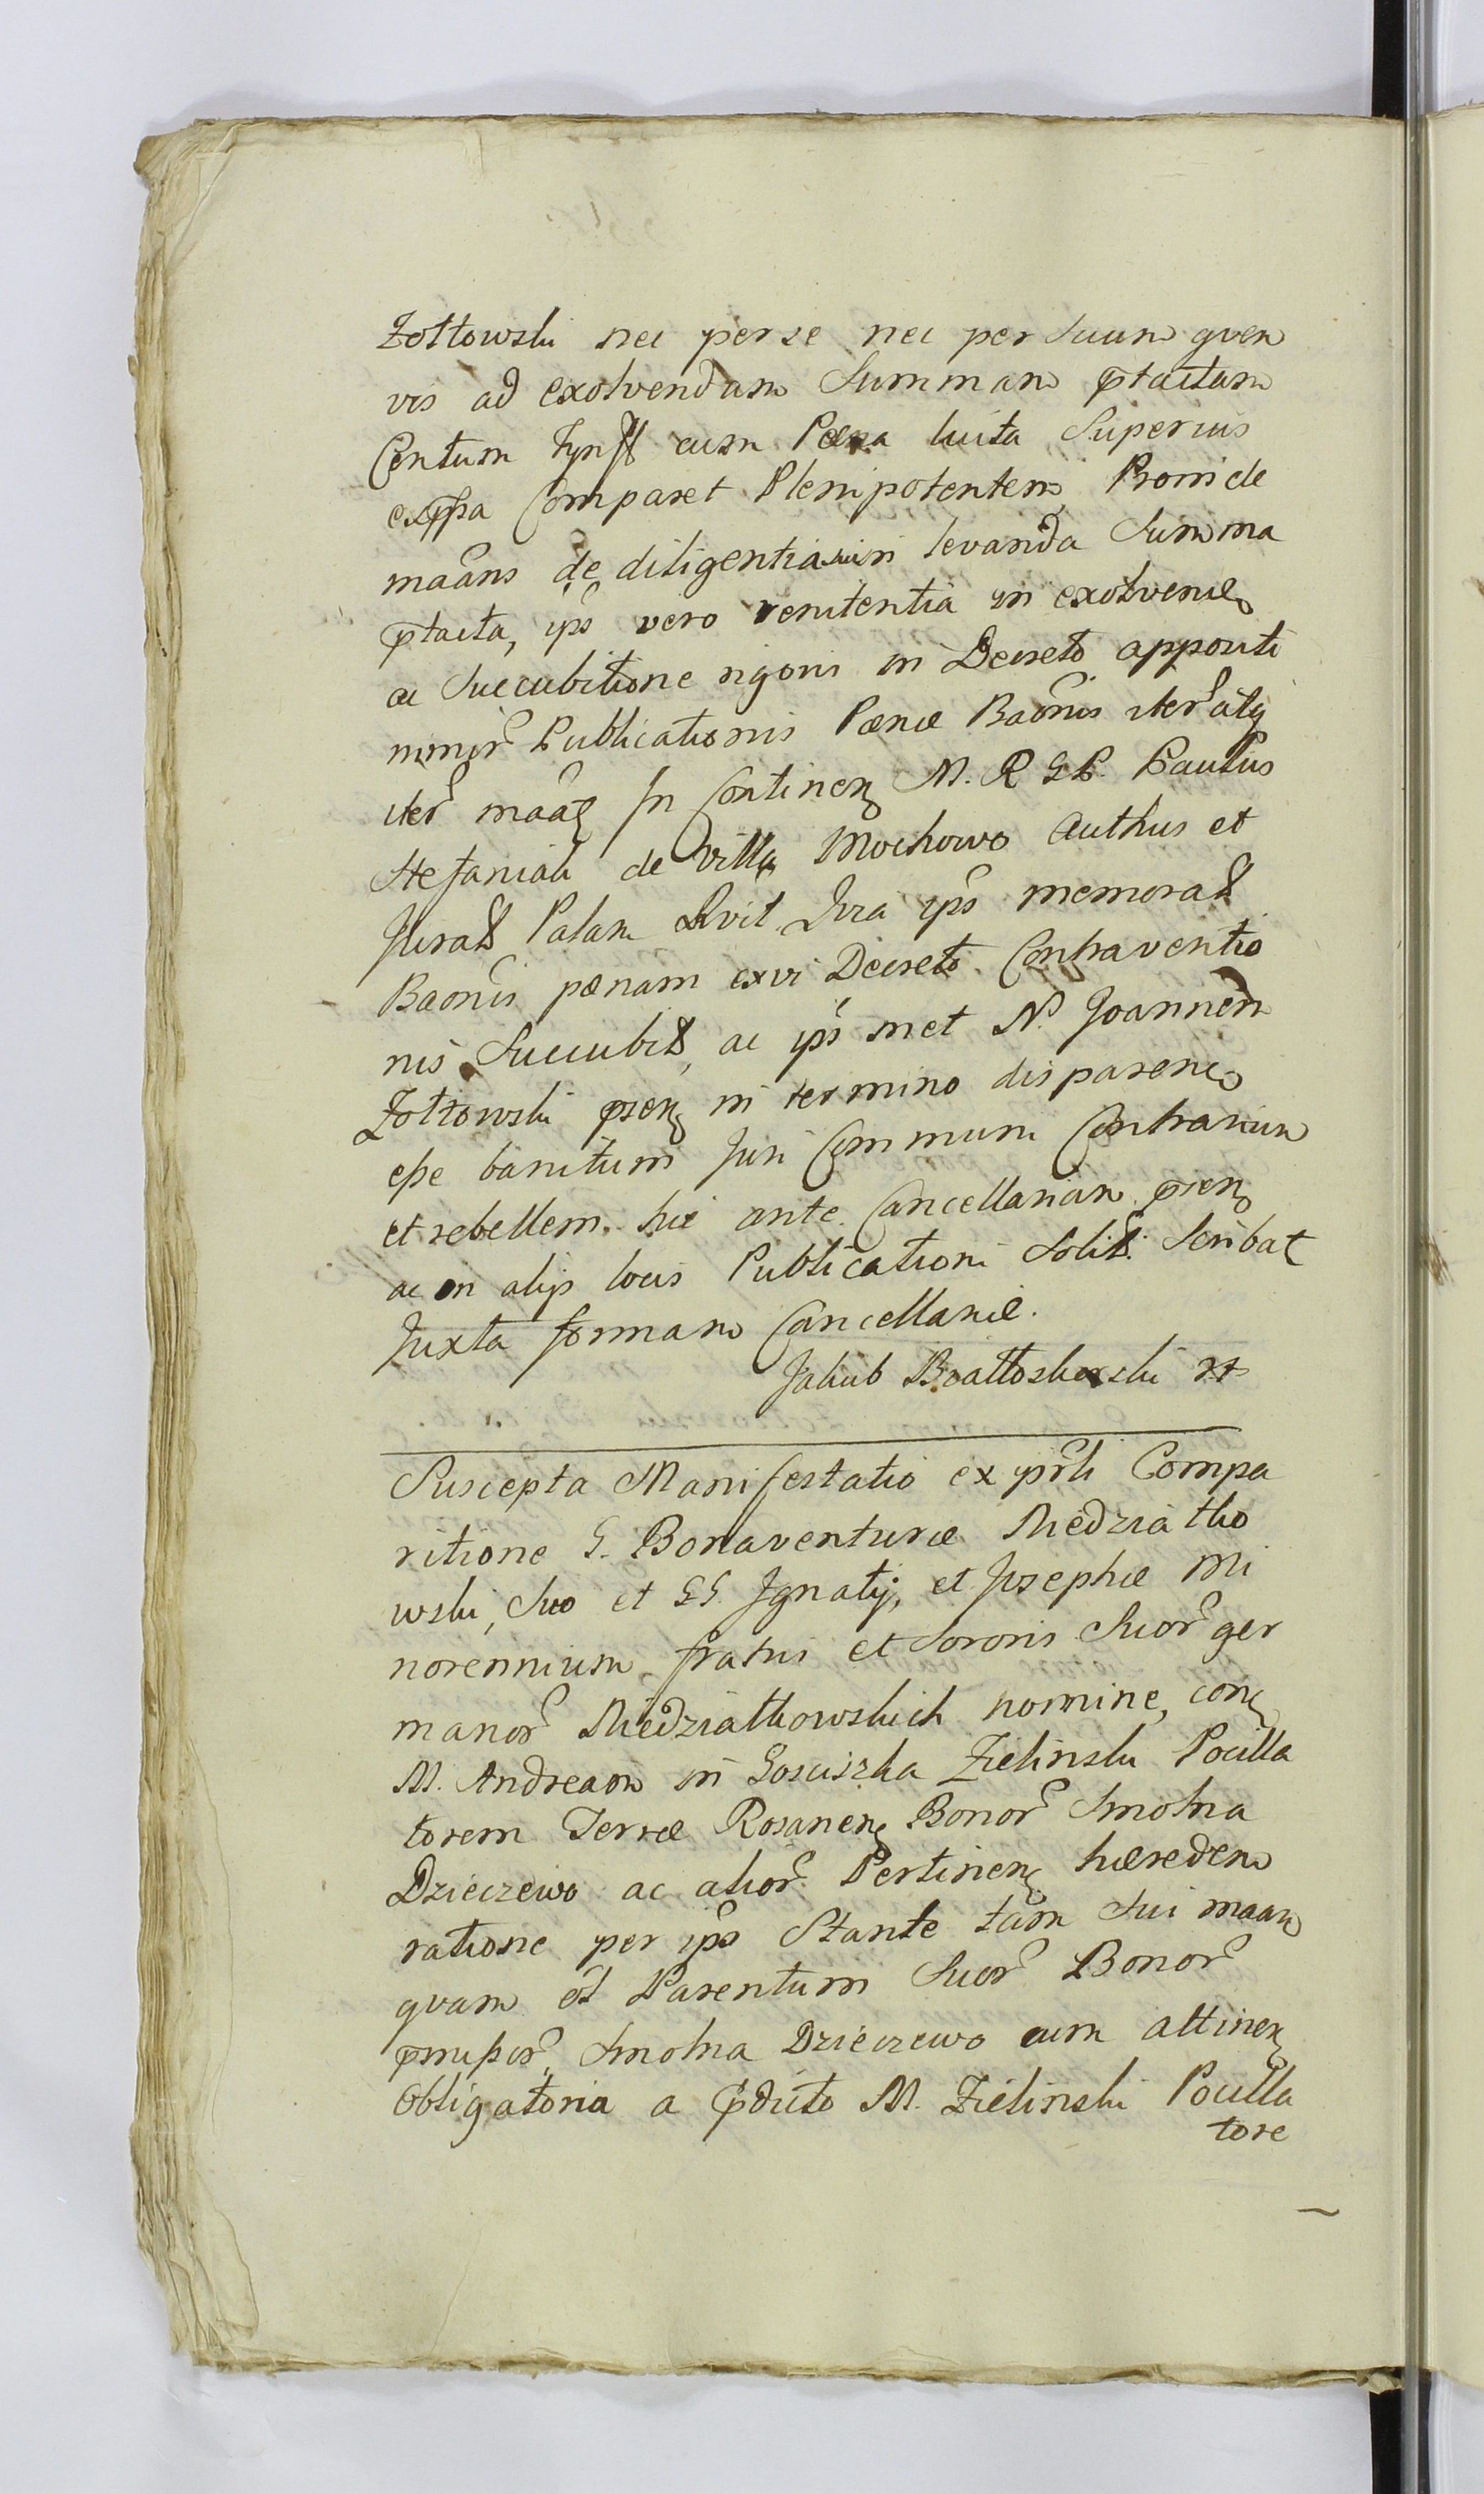 Zołtowski nec per se nec per suum quem
vis ad exolvendam Summam ptactam
Centum Tynff cum Pœna luita Superius
expssa Comparet Plenipotentem, Proinde
maãns de diligentia sui in levanda Summa
ptacta, ips vero renitentia in exolvend
ac Succubitione rigoris in Decreto appositi
nimir Publicationis Pœnæ Baõnis iter atq
iter maãs In Continen M. R G P. Paulus
Stefaniak de Villa Mochowo Authus et
Jurat Palam Qvit Jura ips memorat
Baonis pœnam ex vi Decreti Contraventio
nis Succubit, ac ips met N. Joannem
Zołtowski psen in termino disparen
esse banitum Juri Communi Contrarium
et rebellem, hic ante Cancellariam psen
ac in alijs locis Publicationi Solit Scribat
Juxta formam Cancellariæ.
Jakub Białłoskorski
Suscepta Manifestatio ex psnli Compa
ritione G. Bonaventuræ Niedziałko
wski, Suo et GG. Ignatij, et Josephæ Mi
norennium fratris et Sororis Suor ger
manor Niedziałkowskich nomine, con
M. Andream in Gosciszka Zielinski Pocilla
torem Terræ Rosanen Bonor Smolna
Dzieczewo ac alior Pertinen hæredem
ratione per ips Stante tam Sui maan
qvam et Parentum Suor Bonor
pmissor Smolna Dzieczewo cum attinen
Obligatoria a pdicto M. Zielinski Pocilla
tore